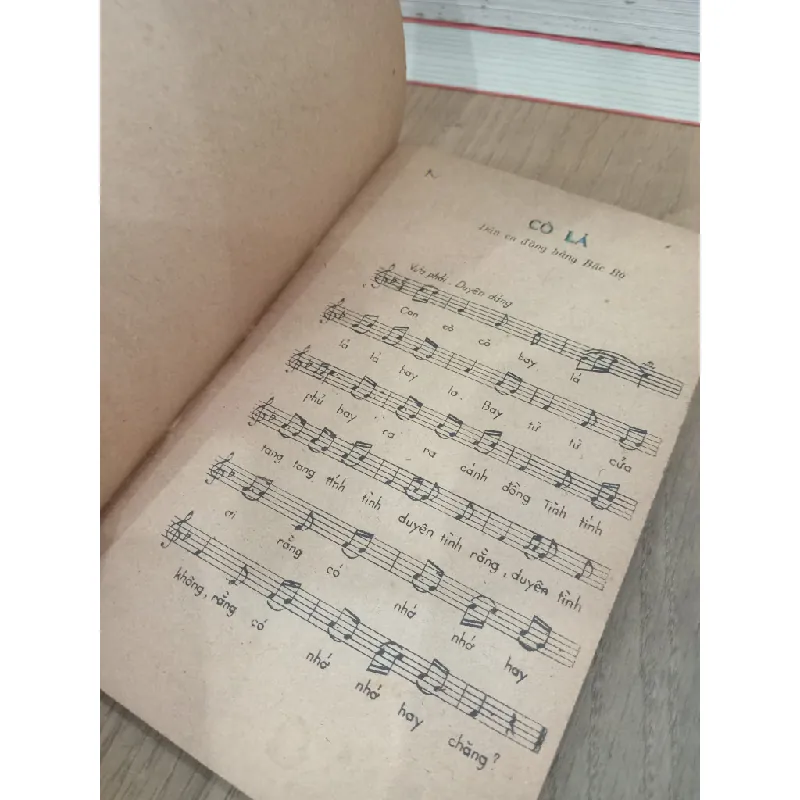 CÒ LẢ
Dân ca đồng bằng Bắc Bộ
Vừa phải - Duyên dáng
Con cò cò bay lả
lả lả bay la. Bay từ từ cửa
phủ bay ra ra cánh đồng Tình tính
tang tang tính tình duyên tình rằng, duyên tình
ơi rằng có nhớ nhớ hay
không, rằng có nhớ nhớ hay chăng?